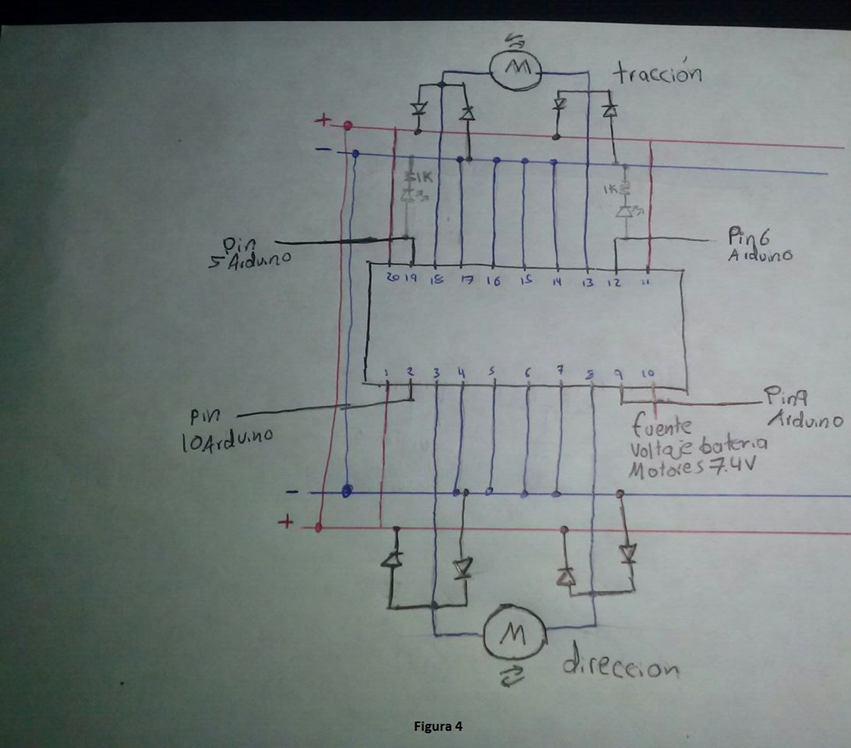 M
tracción
+
-
1K
1K
Pin
5 Arduino
Pin6
Arduino
20 19 18 17 16 15 14 13 12 11
1 2 3 4 5 6 7 8 9 10
Pin
10 Arduino
Pin9
Arduino
fuente
voltaje bateria
Motores 7.4V
-
+
M
direccion
Figura 4